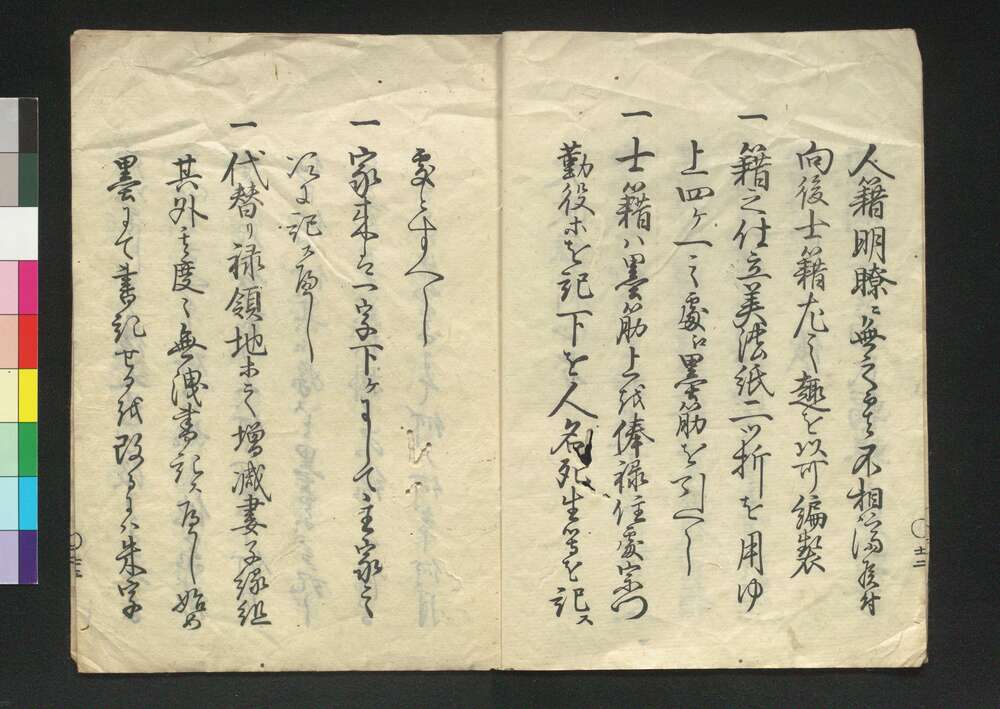 人籍明瞭ニ無之而者不相済候付
向後士籍左之趣を以可編製
一籍之仕立美濃紙二ツ折を用ゆ
上四ケ一之處江墨筋を引へし
一士籍ハ墨筋上江俸禄住處宗門
勤役等を記下を人名死生等を記ス
處とすへし
一家来ハ一字下ケにして主家之
次に記スへし
一代替り禄領地等之増減妻子縁組
其外其度々無洩書記スへし始め
墨にて書記せる江改るハ朱字
士二